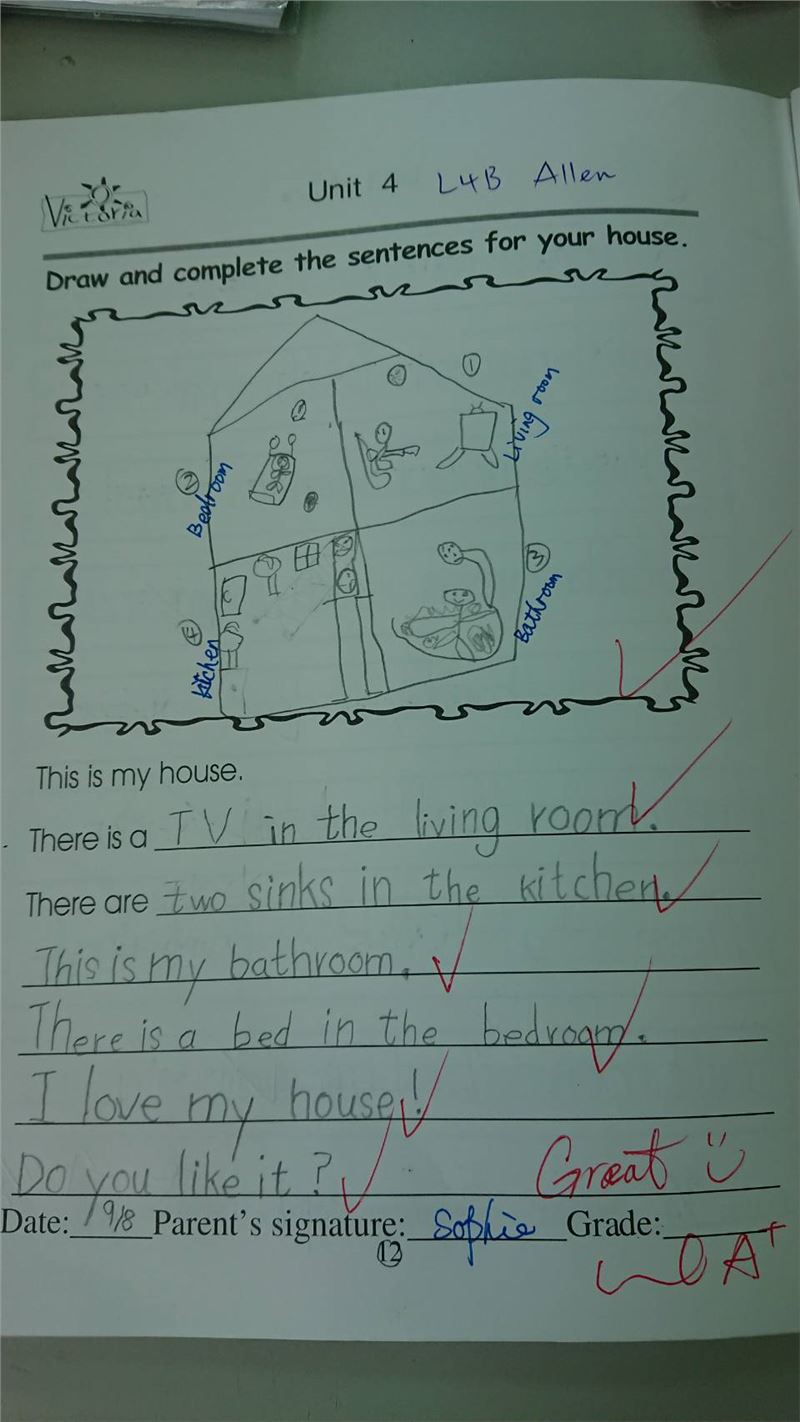 Victoria
Unit 4 L4B Allen
Draw and complete the sentences for your house.
1
Living room
2
Bedroom
3
Bathroom
4
kitchen
This is my house.
There is a TV in the living room.
There are two sinks in the kitchen.
This is my bathroom.
There is a bed in the bedroom.
I love my house!
Do you like it?
Great
Date: 9/8 Parent's signature: Sophie Grade:
A+
12